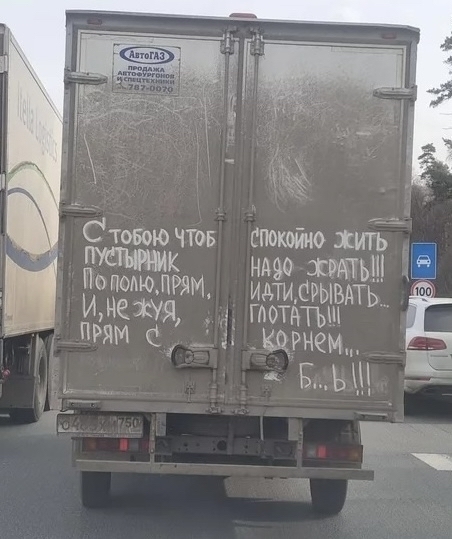 АвтоГАЗ
ПРОДАЖА
АВТОФУРГОНОВ
И СПЕЦТЕХНИКИ
787-0070
С тобою чтоб спокойно жить
пустырник надо жрать!!!
По полю, прям, идти, срывать...
И, не жуя, глотать!!!
прям с корнем...
Б...ь!!!
100
750